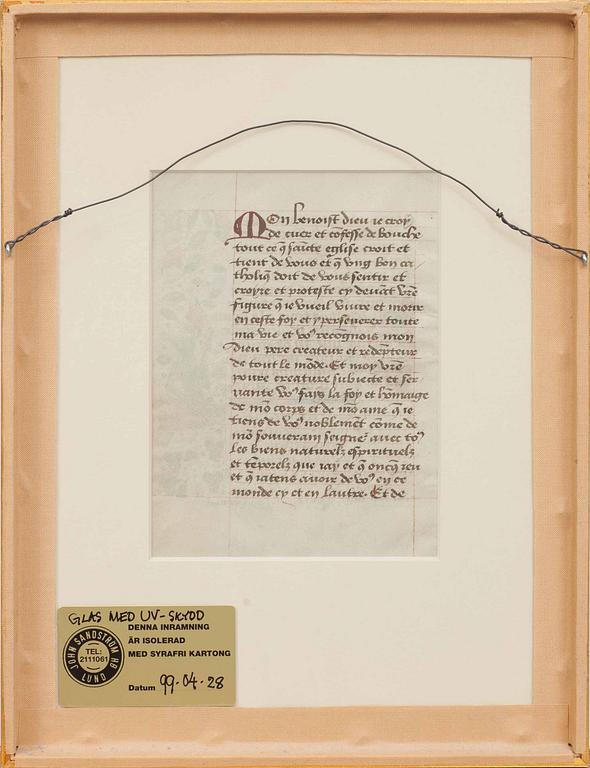 Mon benoist dieu ie croy
de cuer et cõfesse de bouche
tout ce q̃ saĩcte eglise croit et
tient de vous et q̃ vng bon ca
tholiq̃ doit de vous sentir et
croyre et proteste cy deuãt vr̃e
figure q̃ ie vueil viure et morir
en ceste foy et y perseuerer toute
ma vie et voꝰ recongnois mon
dieu pere createur et redẽpteur
de tout le mõde. Et moy vr̃e
poure creature subiecte et ser
uante voꝰ fays la foy et hõmaige
de mõ corps et de mõ ame q̃ ie
tiens de voꝰ noblemẽt cõme de
mõ souuerain seigne᷑ auec toꝰ
les biens naturelz espirituelz
et tẽporelz que iay et q̃ oncq̃ ieu
et q̃ iatens auoir de voꝰ en ce
monde cy et en lautre. Et de
GLAS MED UV-SKYDD
DENNA INRAMNING
ÄR ISOLERAD
MED SYRAFRI KARTONG
Datum 99-04-28
JOHN SANDSTRÖM HB
TEL:
2111061
LUND